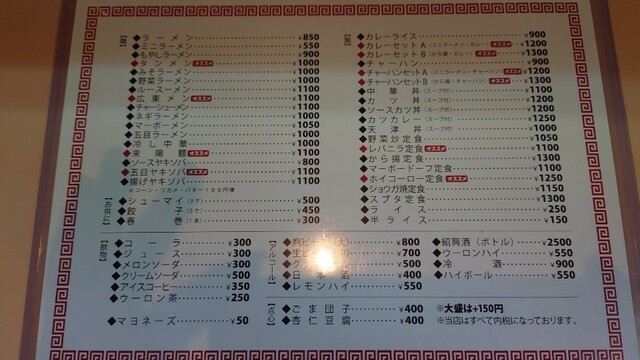 【麺】
◆ラーメン ¥850
◆ミニラーメン ¥550
◆もやしラーメン ¥900
◆タンメン オススメ ¥1000
◆みそラーメン ¥1000
◆野菜ラーメン ¥1000
◆ルースーメン ¥1100
◆広東メン オススメ ¥1100
◆チャーシューメン ¥1100
◆ネギラーメン ¥1000
◆マーボーメン ¥1050
◆五目ラーメン ¥1000
◆冷し中華 ¥1000
◆東陽麺 オススメ ¥1100
◆ソースヤキソバ ¥800
◆五目ヤキソバ オススメ ¥1100
◆揚げヤキソバ ¥1100
※コーン・ワカメ・バター100円増
【お供に】
◆シューマイ(3ケ) ¥500
◆餃子(5ケ) ¥450
◆春巻(1本) ¥300
◆カレーライス ¥900
◆カレーセットA(ミニラーメン・カレー) オススメ ¥1200
◆カレーセットB(から揚・カレー) オススメ ¥1300
◆チャーハン ¥900
◆チャーハンセットA(ミニラーメン・チャーハン) オススメ ¥1200
◆チャーハンセットB(から揚・チャーハン) オススメ ¥1300
◆中華丼(スープ付) ¥1100
◆カツ丼(スープ付) ¥1200
◆ソースカツ丼(スープ付) ¥1200
◆カツカレー(スープ付) ¥1250
◆天津丼(スープ付) ¥1000
◆野菜炒め定食 ¥1050
◆レバニラ定食 オススメ ¥1100
◆から揚定食 ¥1300
◆マーボードーフ定食 ¥1100
◆ホイコーロー定食 オススメ ¥1250
◆ショウガ焼定食 ¥1150
◆スブタ定食 ¥1300
◆ライス ¥250
◆半ライス ¥150
【飲物】
◆コーラ ¥300
◆ジュース ¥300
◆メロンソーダ ¥300
◆クリームソーダ ¥500
◆アイスコーヒー ¥350
◆ウーロン茶 ¥250
◆マヨネーズ ¥50
【アルコール】
◆瓶ビール(大) ¥800
◆生ビ ¥700
◆グ ¥500
◆日本 ¥400
◆レモンハイ ¥550
◆紹興酒(ボトル) ¥2500
◆ウーロンハイ ¥550
◆冷酒 ¥900
◆ハイボール ¥550
【点心】
◆ごま団子 ¥400
◆杏仁豆腐 ¥400
※大盛は+150円
※当店はすべて内税になっております。